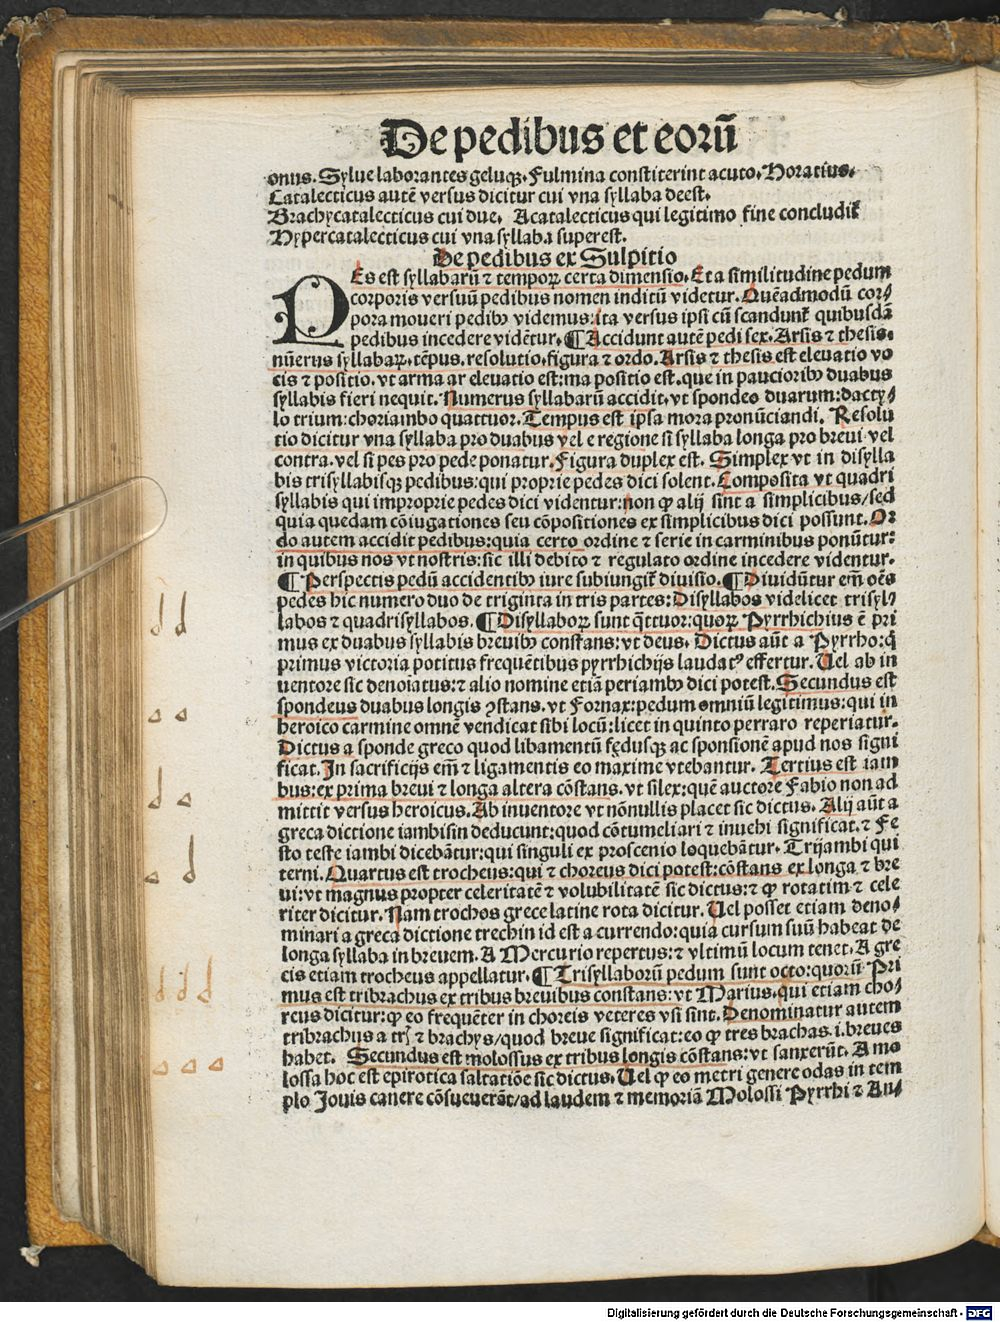 De pedibus et eorū
onus. Sylue laborantes geluqꝫ. Fulmina constiterint acuto. Horatius.
Catalecticus autē versus dicitur cui vna syllaba deest.
Brachycatalecticus cui due. Acatalecticus qui legitimo fine concludit̄
Hypercatalecticus cui vna syllaba superest.
De pedibus ex Sulpitio
PEs est syllabarū ⁊ tempoꝝ certa dimensio. Et a similitudine pedum
corporis versuū pedibus nomen inditū videtur. Quēadmodū cor⸗
pora moueri pedibꝰ videmus: ita versus ipsi cū scandunt̄ quibusdā
pedibus incedere vidētur. ¶ Accidunt autē pedi sex. Arsis ⁊ thesis.
nūerus syllabaꝝ. tēpus. resolutio. figura ⁊ ordo. Arsis ⁊ thesis est eleuatio vo
cis ⁊ positio. vt arma ar eleuatio est: ma positio est. que in paucioribꝰ duabus
syllabis fieri nequit. Numerus syllabarū accidit. vt spondeo duarum: dacty⸗
lo trium: choriambo quattuor. Tempus est ipsa mora pronūciandi. Resolu
tio dicitur vna syllaba pro duabus vel e regione si syllaba longa pro breui vel
contra. vel si pes pro pede ponatur. Figura duplex est. Simplex vt in disylla
bis trisyllabisqꝫ pedibus: qui proprie pedes dici solent. Composita vt quadri
syllabis qui improprie pedes dici videntur: non ꝙ alij sint a simplicibus/ sed
quia quedam cōiugationes seu cōpositiones ex simplicibus dici possunt. Or
do autem accidit pedibus: quia certo ordine ⁊ serie in carminibus ponūtur:
in quibus nos vt nostris: sic illi debito ⁊ regulato ordine incedere videntur.
¶ Perspectis pedū accidentibꝰ iure subiungit̄ diuisio. ¶ Diuidūtur em̄ oēs
pedes hic numero duo de triginta in tris partes: Disyllabos videlicet trisyl⸗
labos ⁊ quadrisyllabos. ¶ Disyllaboꝝ sunt q̄ttuor: quoꝝ Pyrrhichius ē pri
mus ex duabus syllabis breuibꝰ constans: vt deus. Dictus aūt a Pyrrho: q̄
primus victoria potitus frequētibus pyrrhichijs laudatꝰ effertur. Uel ab in
uentore sic denoīatus: ⁊ alio nomine etiā periambꝰ dici potest. Secundus est
spondeus duabus longis ꝯstans. vt Fornax: pedum omniū legitimus: qui in
heroico carmine omnē vendicat sibi locū: licet in quinto perraro reperiatur.
Dictus a sponde greco quod libamentū fędusqꝫ ac sponsionē apud nos signi
ficat. In sacrificijs em̄ ⁊ ligamentis eo maxime vtebantur. Tertius est iam
bus: ex prima breui ⁊ longa altera cōstans. vt silex: quē auctore Fabio non ad
mittit versus heroicus. Ab inuentore vt nōnullis placet sic dictus. Alij aūt a
greca dictione iambisin deducunt: quod cōtumeliari ⁊ inuehi significat. ⁊ Fe
sto teste iambi dicebātur: qui singuli ex proscenio loquebātur. Trijambi qui
terni. Quartus est trocheus: qui ⁊ choreus dici potest: cōstans ex longa ⁊ bre
ui: vt magnus propter celeritatē ⁊ volubilitatē sic dictus: ⁊ ꝙ rotatim ⁊ cele
riter dicitur. Nam trochos grece latine rota dicitur. Uel posset etiam deno⸗
minari a greca dictione trechin id est a currendo: quia cursum suū habeat de
longa syllaba in breuem. A Mercurio repertus: ⁊ vltimū locum tenet. A gre
cis etiam trocheus appellatur. ¶ Trisyllaborū pedum sunt octo: quorū Pri
mus est tribrachus ex tribus breuibus constans: vt Marius. qui etiam cho⸗
reus dicitur: ꝙ eo frequēter in choreis veteres vsi sint. Denominatur autem
tribrachus a trj ⁊ brachys/ quod breue significat: eo ꝙ tres brachas .i. breues
habet. Secundus est molossus ex tribus longis cōstans: vt sanxerūt. A mo
lossa hoc est epirotica saltatiōe sic dictus. Uel ꝙ eo metri genere odas in tem
plo Jouis canere cōsueuerāt/ ad laudem ⁊ memoriā Molossi Pyrrhi ⁊ An⸗
Digitalisierung gefördert durch die Deutsche Forschungsgemeinschaft - DFG